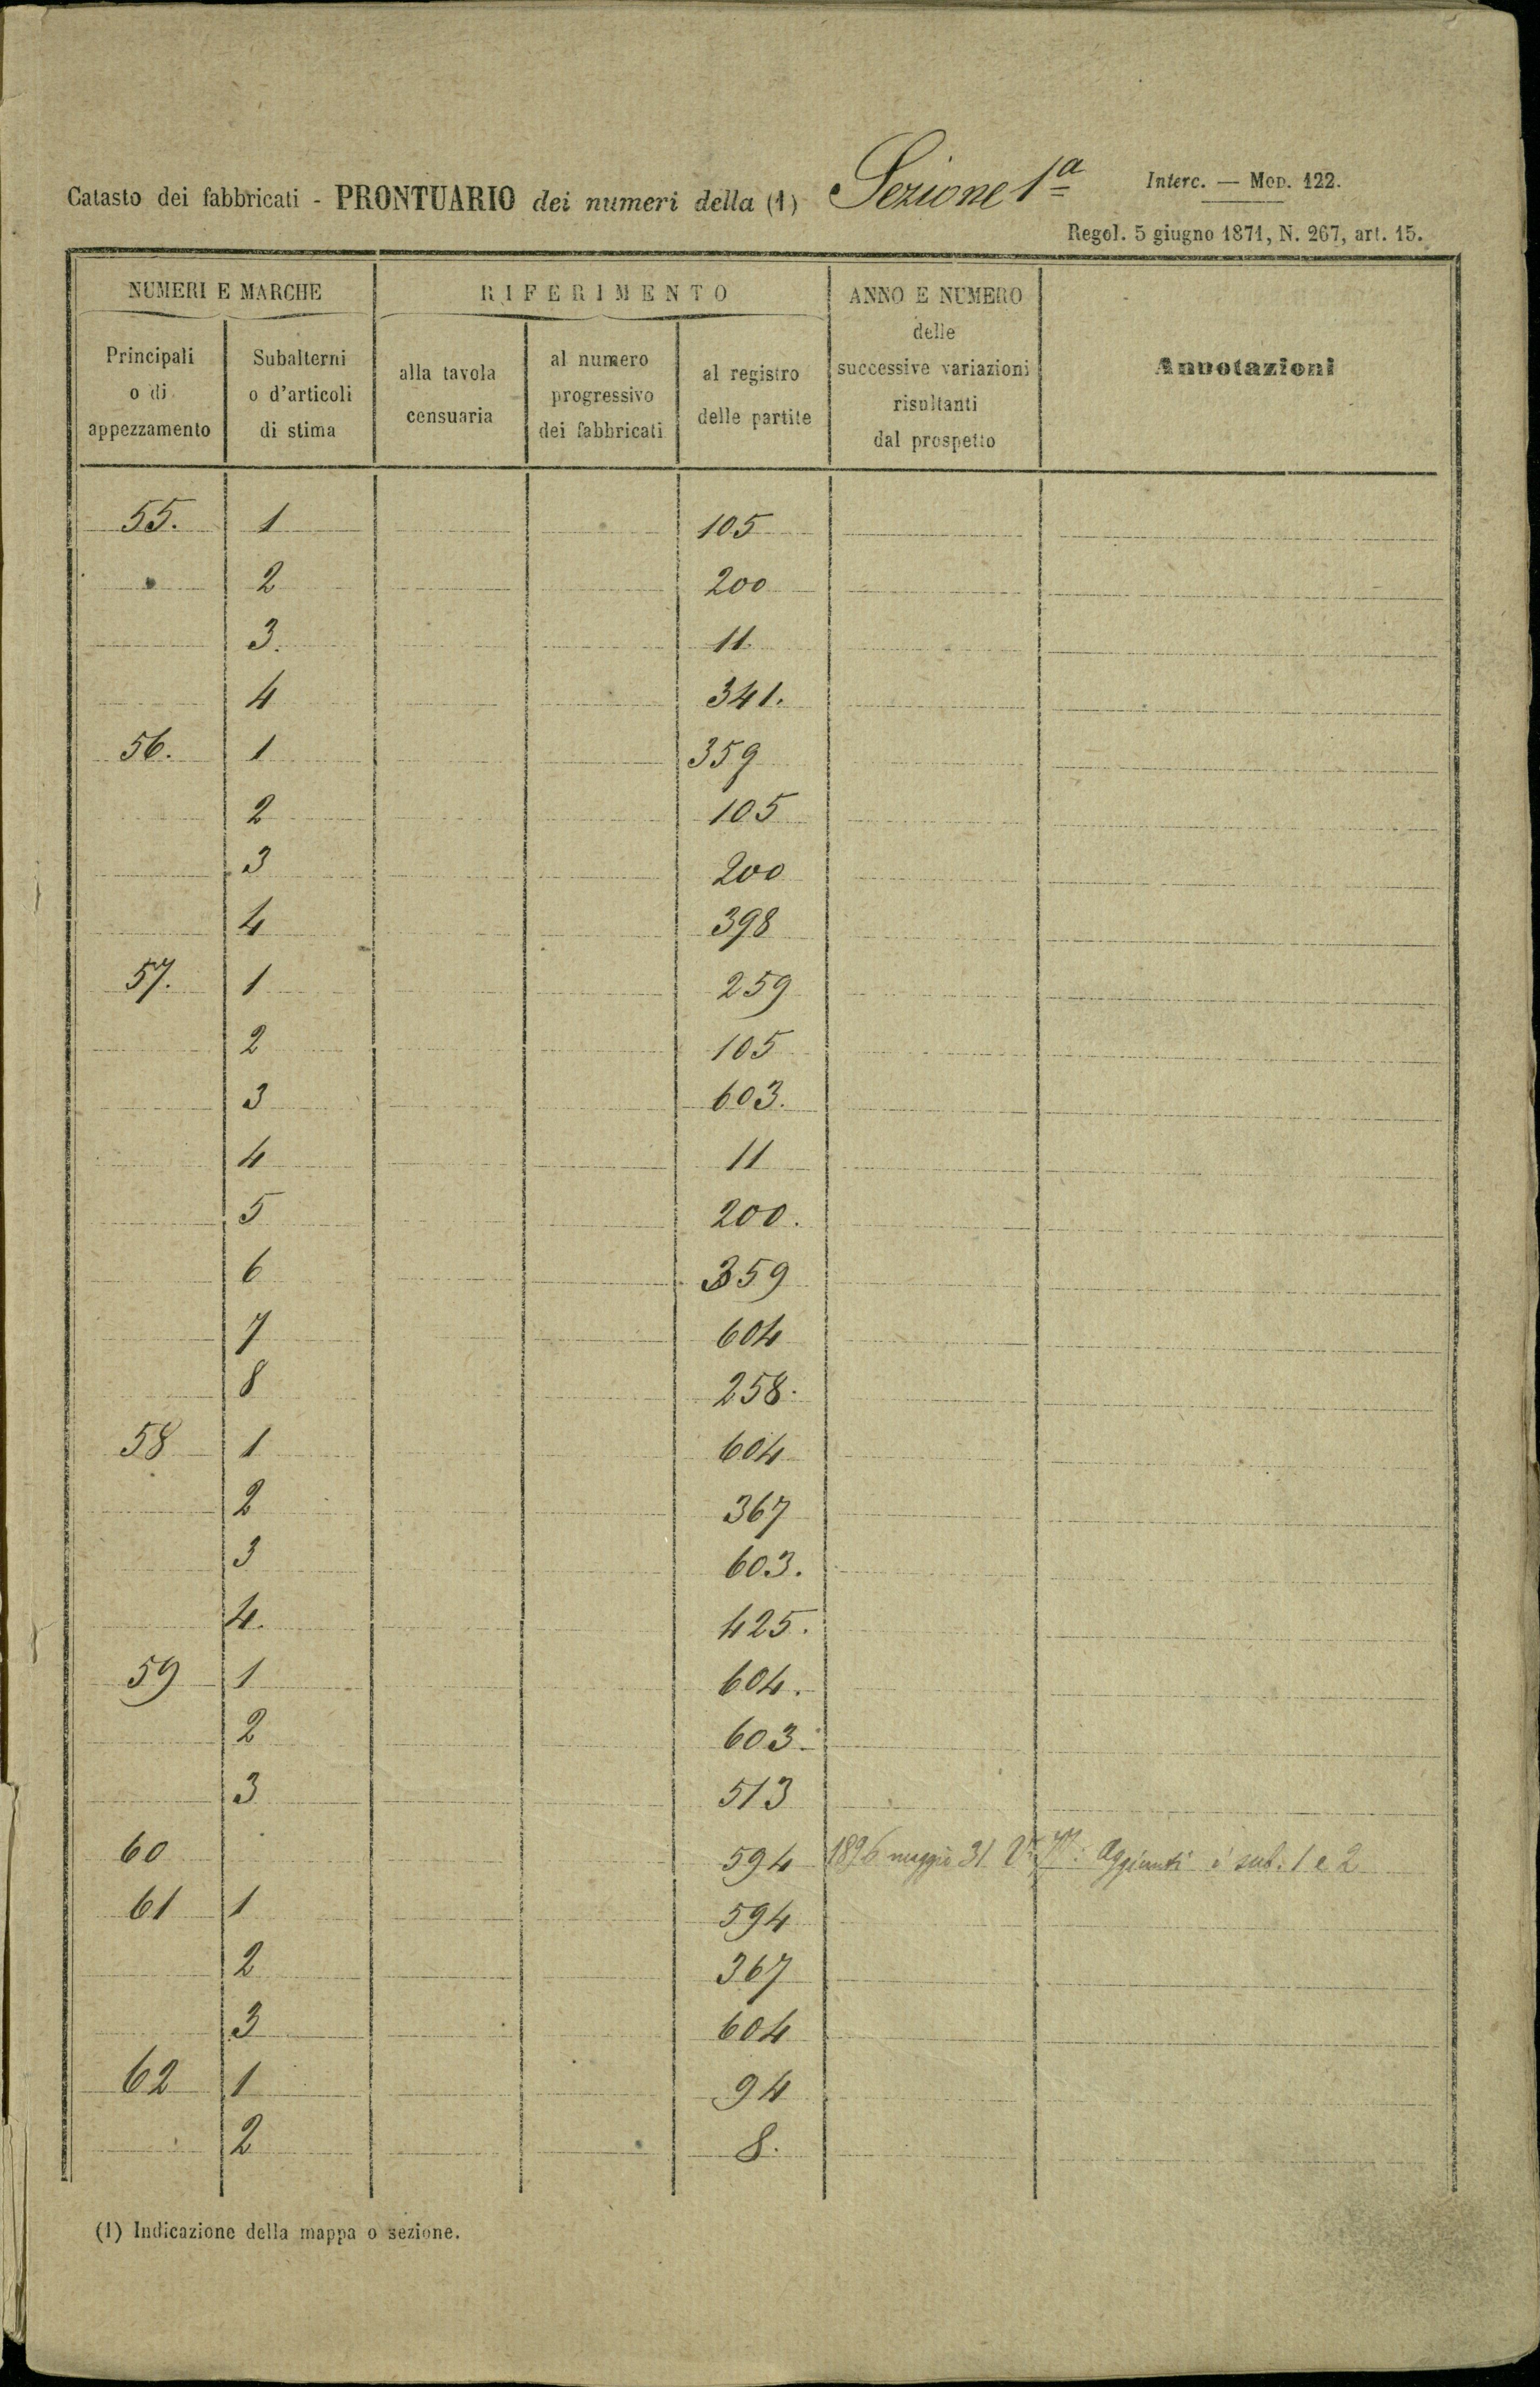 Catasto dei fabbricati - PRONTUARIO dei numeri della (1) Sezione 1ª
Interc. — Mod. 122.
Regol. 5 giugno 1871, N. 267, art. 15.
NUMERI E MARCHE
Principali
o di
appezzamento
Subalterni
o d'articoli
di stima
RIFERIMENTO
alla tavola
censuaria
al numero
progressivo
dei fabbricati
al registro
delle partite
ANNO E NUMERO
delle
successive variazioni
risultanti
dal prospetto
Annotazioni
55. 1 105
2 200
3. 11.
4 341.
56. 1 359
2 105
3 200
4 398
57. 1 259
2 105
3 603.
4 11
5 200.
6 359
7 604
8 258.
58 1 604
2 367
3 603.
4. 425.
59 1 604.
2 603.
3 513
60 594 1896 maggio 31 Aggiunti i sub. 1 e 2
61 1 594
2 367
3 604
62 1 94
2 8.
(1) Indicazione della mappa o sezione.